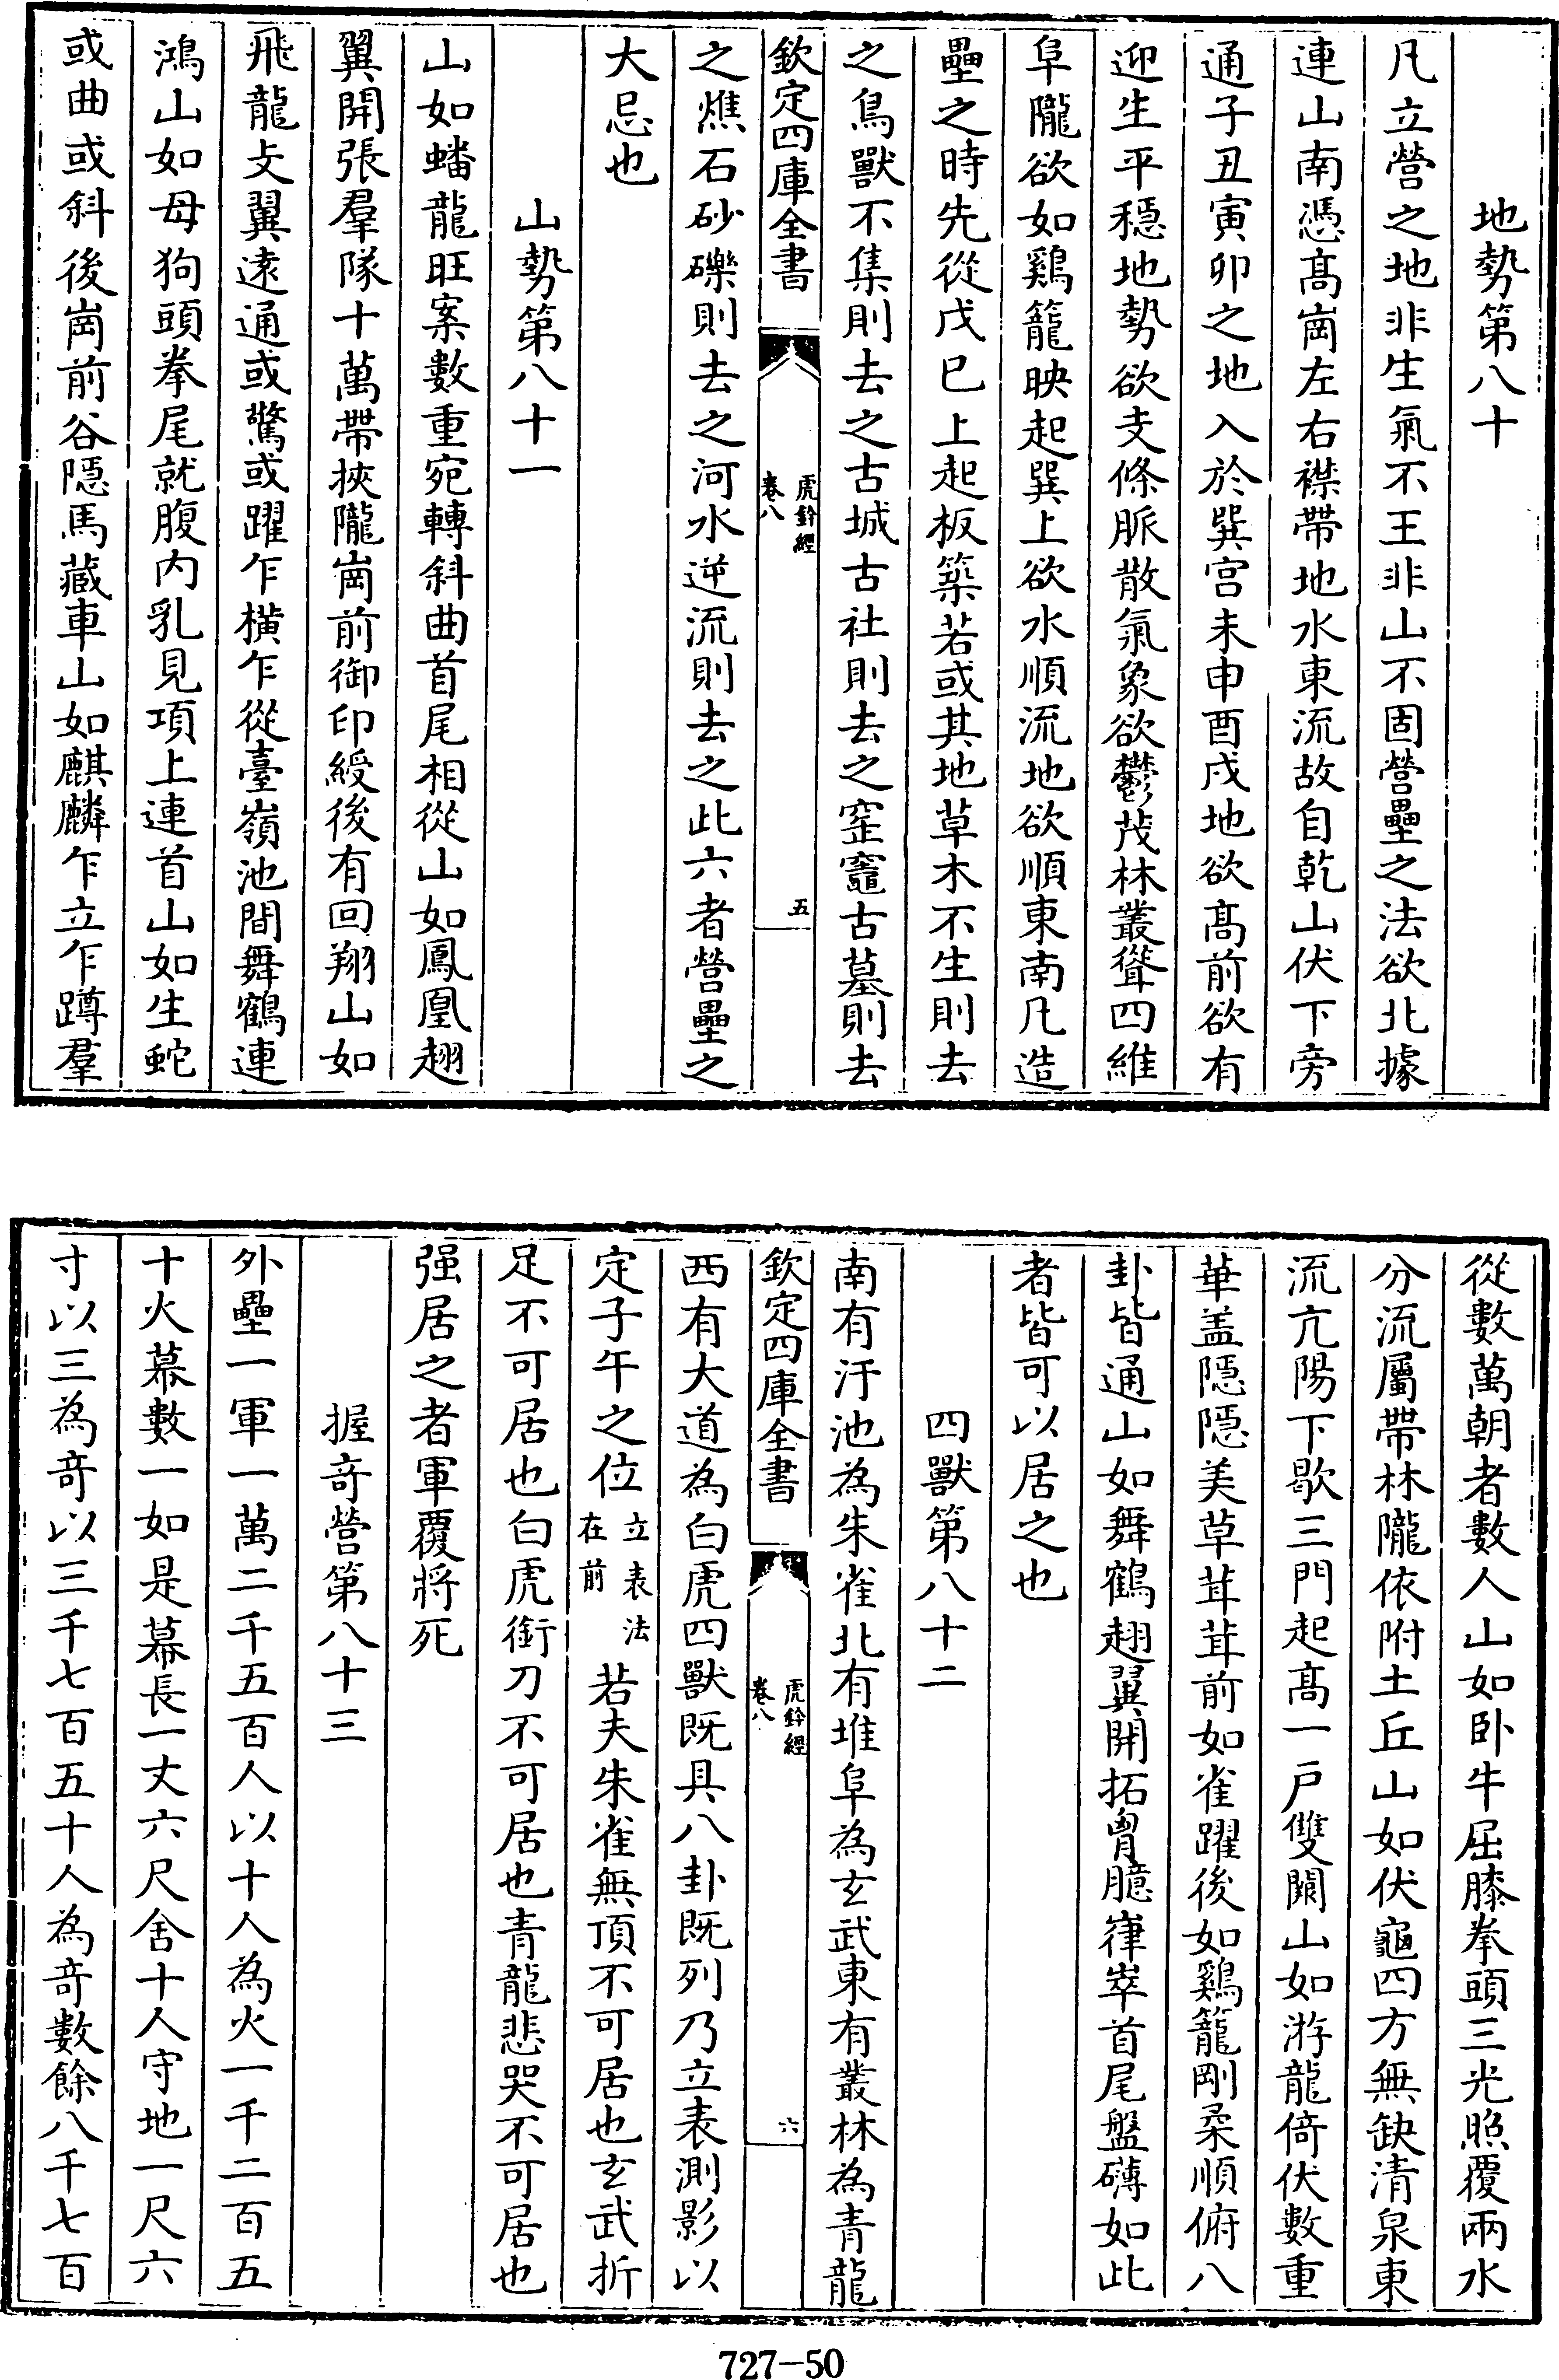 地勢第八十
凡立營之地非生氣不王非山不固營壘之法欲北據
連山南憑髙崗左右襟帶地水東流故自乾山伏下旁
通子丑寅卯之地入於巽宫未申酉戌地欲髙前欲有
迎生平穩地勢欲支條脈散氣象欲鬱茂林叢聳四維
阜隴欲如鷄籠映起巽上欲水順流地欲順東南凡造
壘之時先從戊巳上起板築若或其地草木不生則去
之鳥獸不集則去之古城古社則去之窑竈古墓則去
欽定四庫全書
虎鈐經
卷八
五
之燋石砂礫則去之河水逆流則去之此六者營壘之
大忌也
山勢第八十一
山如蟠龍旺案數重宛轉斜曲首尾相從山如鳳凰翅
翼開張羣隊十萬帶挾隴崗前御印綬後有回翔山如
飛龍攴翼逺通或驚或躍乍横乍從臺嶺池間舞鶴連
鴻山如母狗頭拳尾就腹内乳見項上連首山如生蛇
或曲或斜後崗前谷隠馬藏車山如麒麟乍立乍蹲羣
從數萬朝者數人山如卧牛屈膝拳頭三光照覆兩水
分流屬帶林隴依附土丘山如伏龜四方無缺清泉東
流亢陽下歇三門起髙一戸雙闕山如游龍倚伏數重
華盖隠隠美草茸茸前如雀躍後如鷄籠剛柔順俯八
卦皆通山如舞鶴翅翼開拓胷臆嵂崒首尾盤礴如此
者皆可以居之也
四獸第八十二
南有汙池為朱雀北有堆阜為玄武東有叢林為青龍
欽定四庫全書
虎鈐經
卷八
六
西有大道為白虎四獸既具八卦既列乃立表測影以
定子午之位立表法在前若夫朱雀無頂不可居也玄武折
足不可居也白虎銜刀不可居也青龍悲哭不可居也
强居之者軍覆將死
握竒營第八十三
外壘一軍一萬二千五百人以十人為火一千二百五
十火幕數一如是幕長一丈六尺舍十人守地一尺六
寸以三為竒以三千七百五十人為竒數餘八千七百
727-50